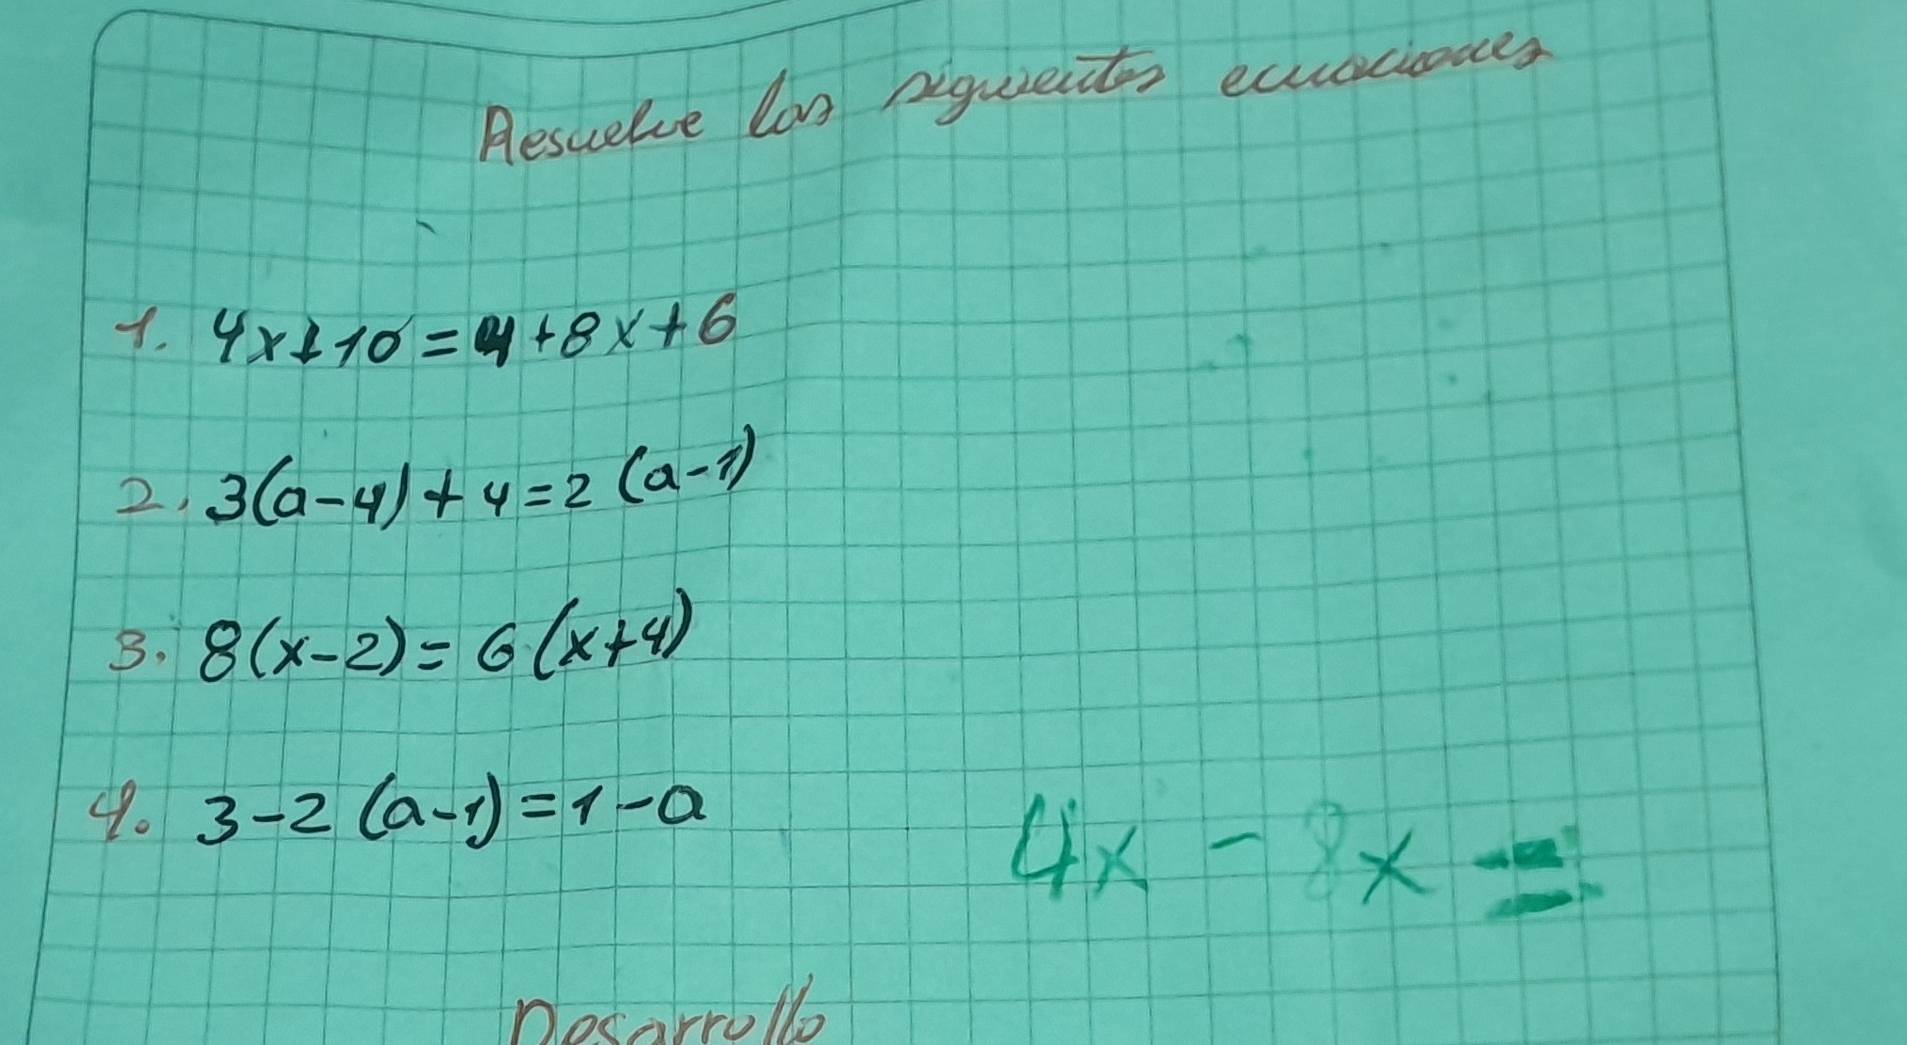 Resuelve las siguientes ecuaciones
1. 4x+10=4+8x+6
2. 3(a-4)+4=2(a-1)
3. 8(x-2)=6(x+4)
4. 3-2(a-1)=1-a
4x - 8x =
Desarrollo